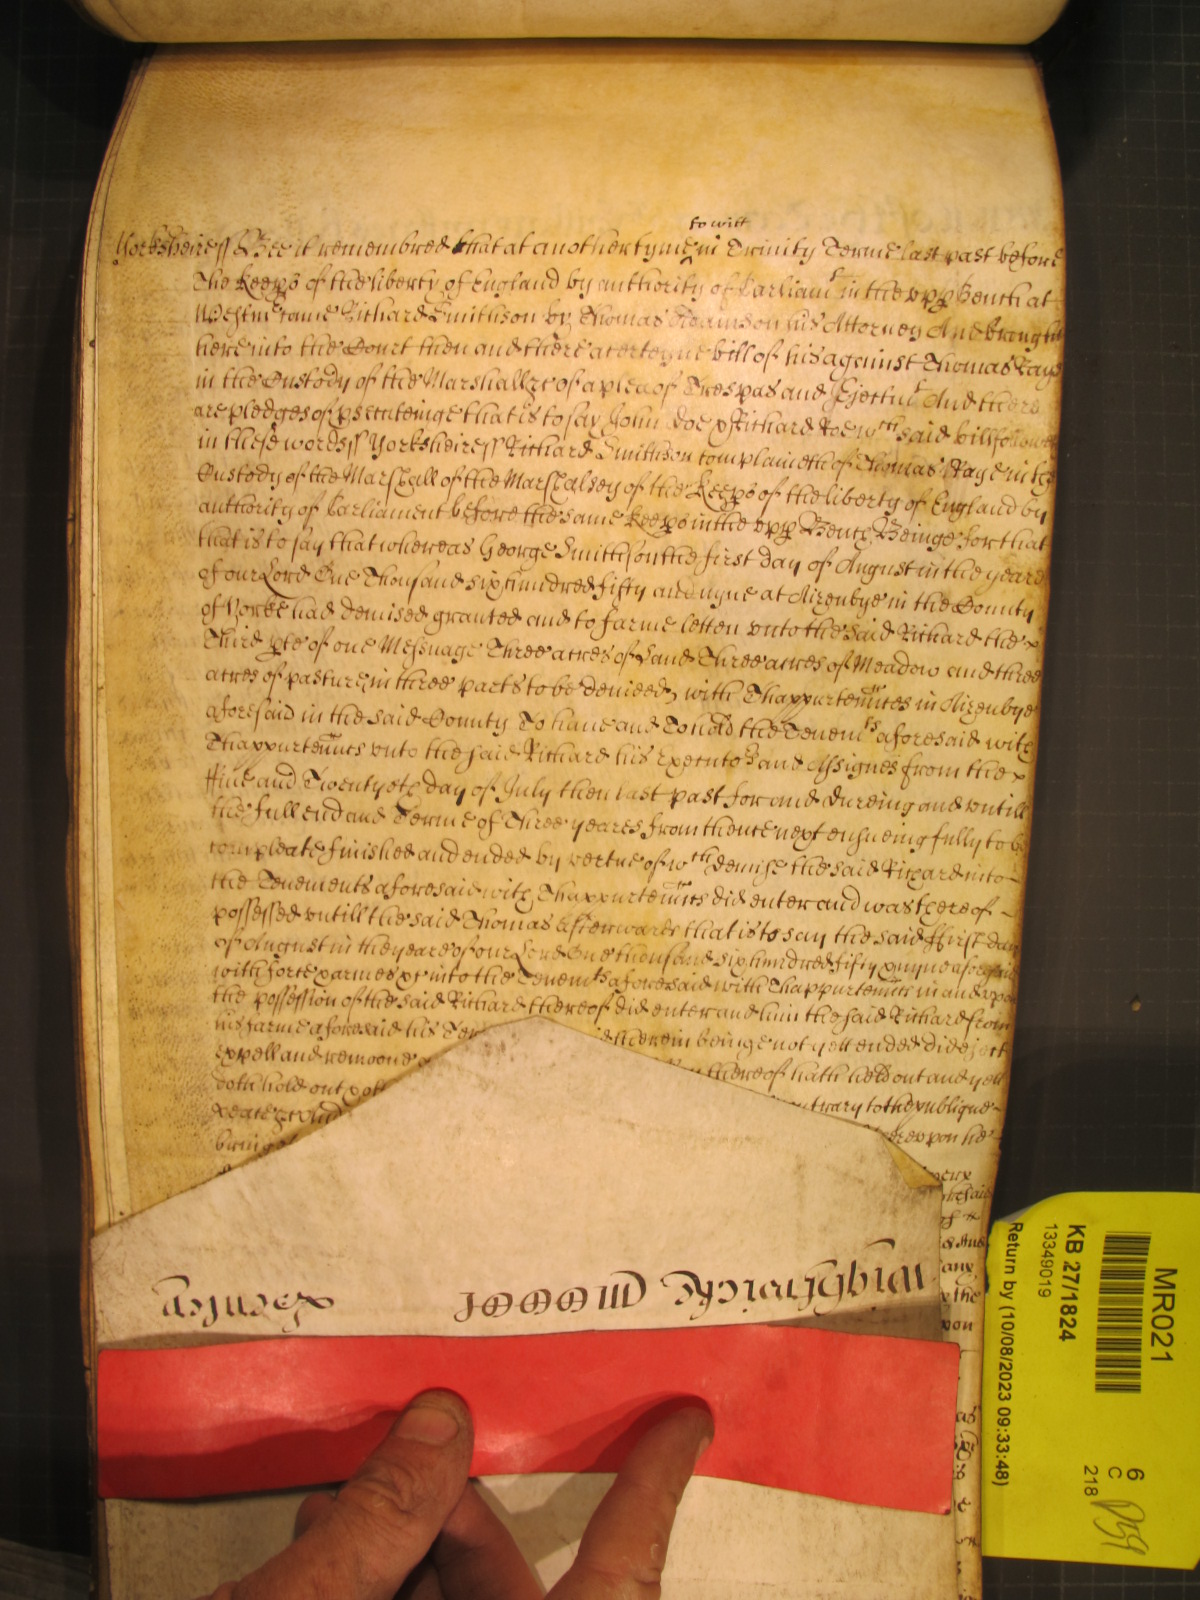 to witt
Yorksheire ss Bee it remembred that at another tyme in Trinity Terme last past before
The Keep�s of the liberty of England by authority of Parliamt in the upp Bench at
Westmr came Richard Smithson by Thomas Adamson his Attorney And brought
here into the Court then and there a certeyne bill of his against Thomas Raye
in the Custody of the Marshall &c of a plea of Trespas and Ejectmt And there
are pledges of psecuteinge that is to say John Doe & Richard Roe wch said bill followes
in these words ss Yorksheire ss Richard Smithson complaineth of Thomas Raye in the
Custody of the Marshall of the Marshalsey of the Keeps of the liberty of England by
authority of Parliament before the same Keeps in the upp Bench Beinge For that
that is to say that whereas George Smithson the first day of August in the yeare
of our Lord One Thousand six hundred fifty and nyne at Aizenbye in the County
of Yorke had demised granted and to farme letten unto the said Richard the
Third pte of one Messuage Three acres of Land Three acres of Meadow and three
acres of pasture in three parts to be devided with Thappurtennces in Aizenbye
aforesaid in the said County To have and To hold the Tenemts aforesaid with
Thappurtennces unto the said Richard his Executors and Assignes from the
ffive and Twentyeth day of July then last past for and dureing and untill
the full end and Terme of Three yeares from thence next ensueing fully to be
compleate finished and ended by vertue of wch demise the said Richard into
the Tenements aforesaid with Thappurtennces did enter and was thereof
possessed untill the said Thomas afterwards that is to say the said ffirst day
of August in the yeare of our Lord One thousand six hundred fifty & nyne aforesaid
with force & armes &c into the Tenemts aforesaid with Thappurtennces in and upon
the possession of the said Richard thereof did enter and him the said Richard from
his farme aforesaid his Ter d therein beinge not yett ended did eject
expell and remoove thereof hath held out and yett
doth hold out & oth contrary to the publique
peace &c Whe hereupon he
bringe
aforesaid
any
& the
upon
MR021
KB 27/1824
13349019
Return by (10/08/2023 09:33:48)
6
C
218